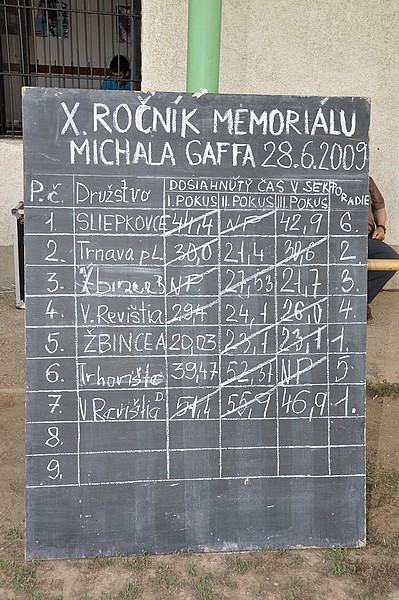 X. ROČNÍK MEMORIÁLU
MICHALA GAFFA 28.6.2009
P.č. Družstvo DOSIAHNUTÝ ČAS V SEK. PORADIE
I. POKUS II. POKUS III. POKUS
1. SLIEPKOVCE 44,4 NP 42,9 6.
2. Trnava p.L. 30,0 21,4 30,6 2.
3. Žbince B NP 27,53 21,7 3.
4. V. Revištia 29,4 24,1 26,0 4.
5. ŽBINCE A 20,03 23,1 23,1 1.
6. Trhovište 39,47 52,57 NP 5.
7. V Revištia D. 51,4 55,9 46,9 1.
8.
9.